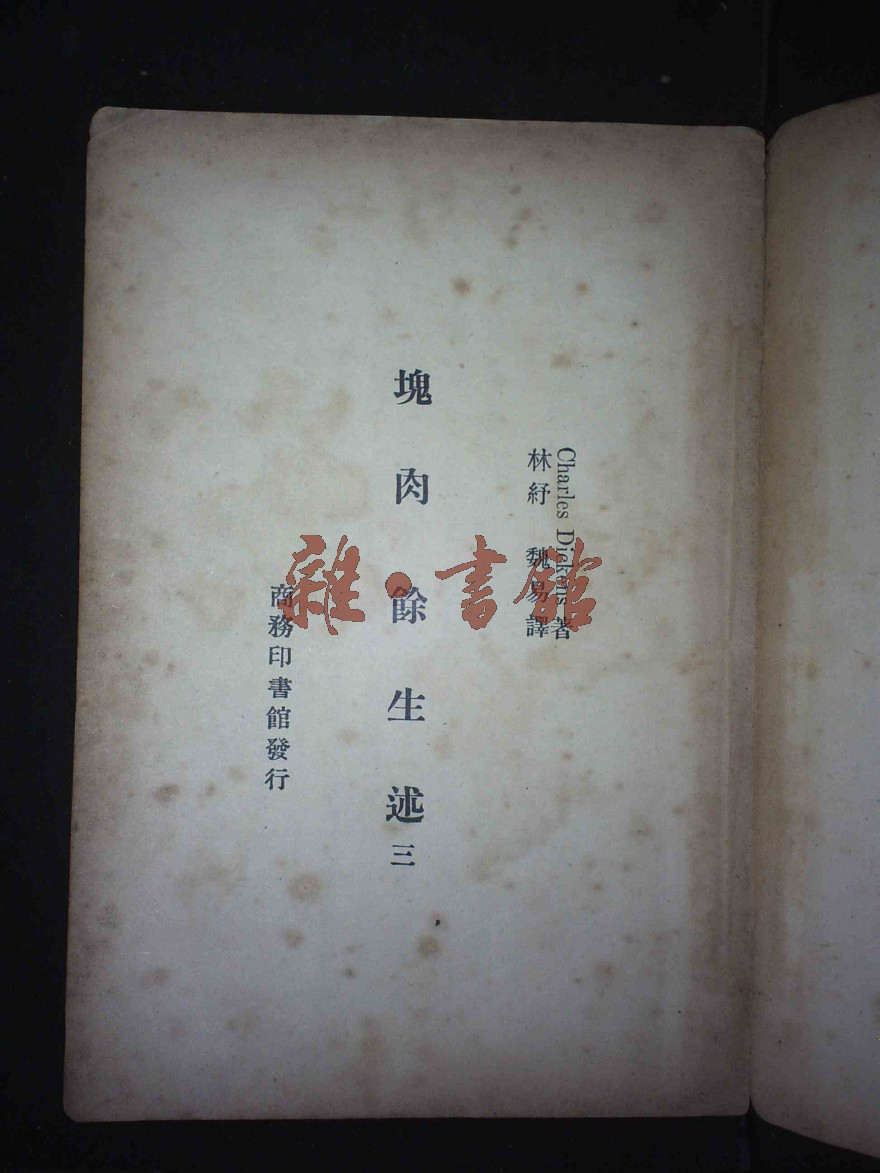 Charles Dickens 著
林紓 魏易 譯
塊肉餘生述 三
商務印書館發行
雜·書館